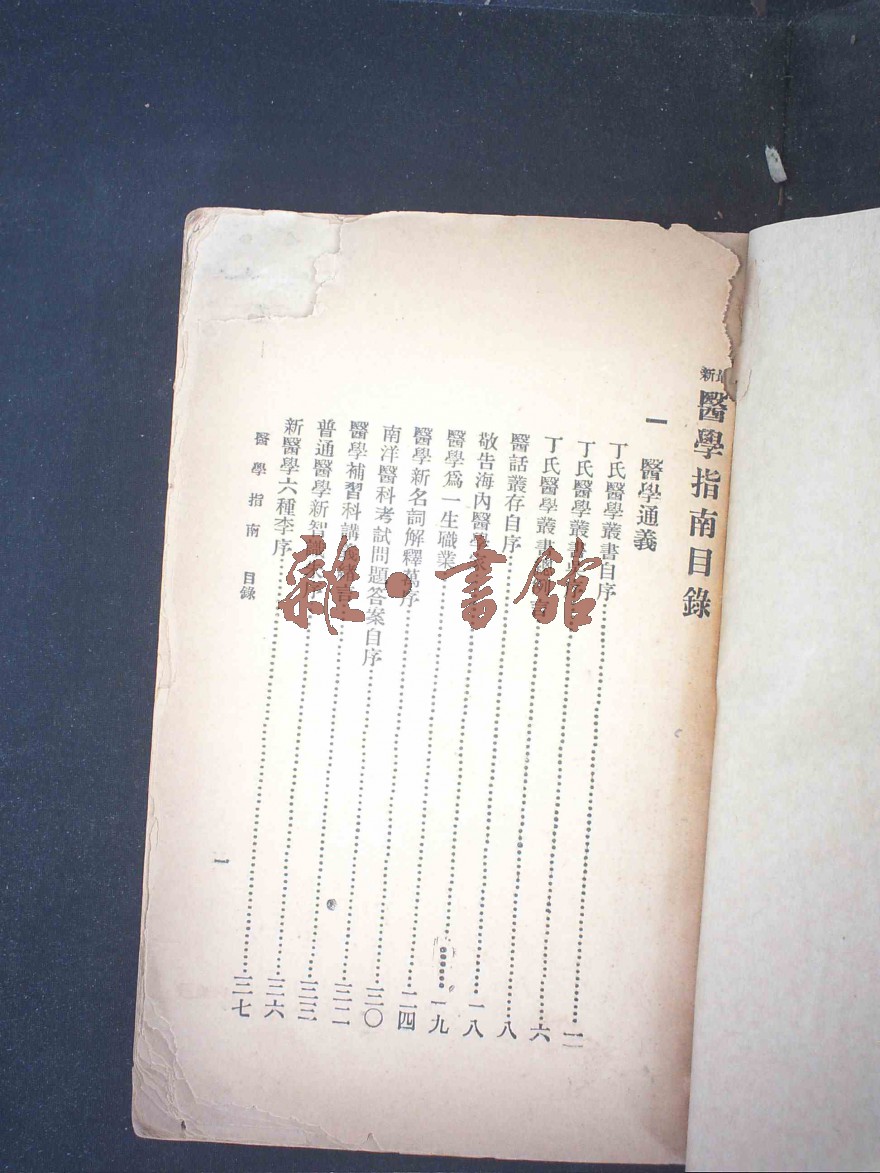 新
醫學指南目錄
一 醫學通義
丁氏醫學叢書自序……二
丁氏醫學叢書……六
丁氏醫學叢書……八
醫話叢存自序……一八
敬告海內醫學家……一九
醫學爲一生職業……二四
醫學新名詞解釋萬序……三〇
南洋醫科考試問題答案自序……三二
醫學補習科講義緒言……三三
普通醫學新智識……三六
新醫學六種李序……三七
醫學指南 目錄
一
雜·書館